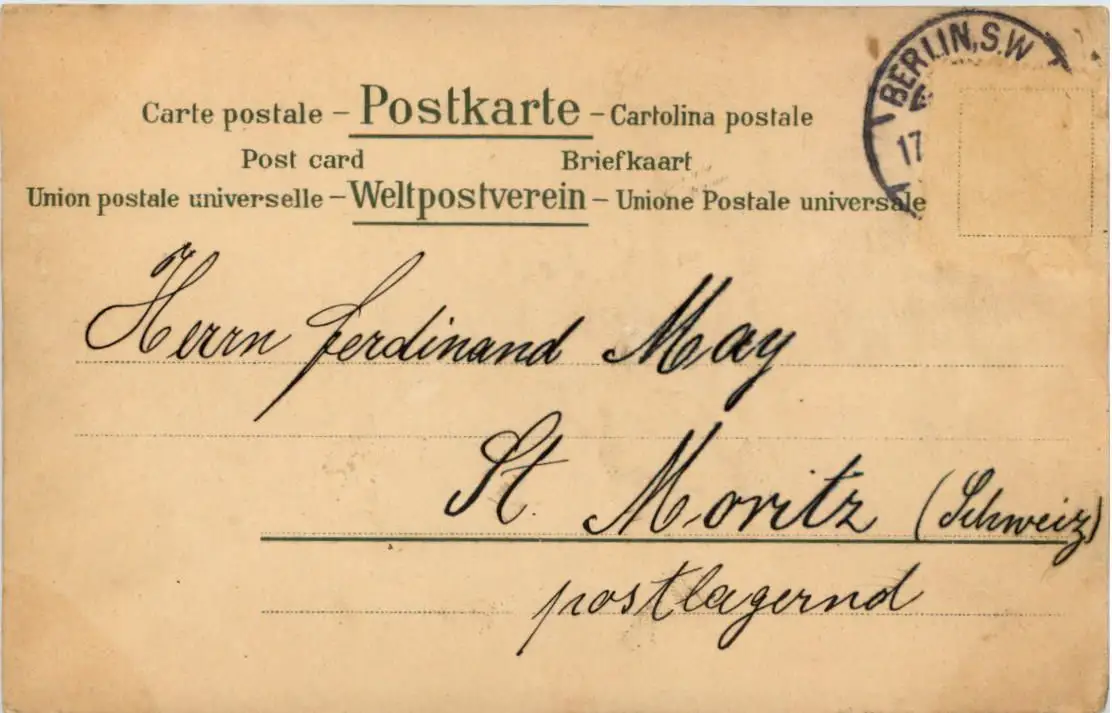 BERLIN, S.W
17
Carte postale – Postkarte – Cartolina postale
Post card Briefkaart
Union postale universelle – Weltpostverein – Unione Postale universale
Herrn Ferdinand May
St. Moritz (Schweiz)
postlagernd